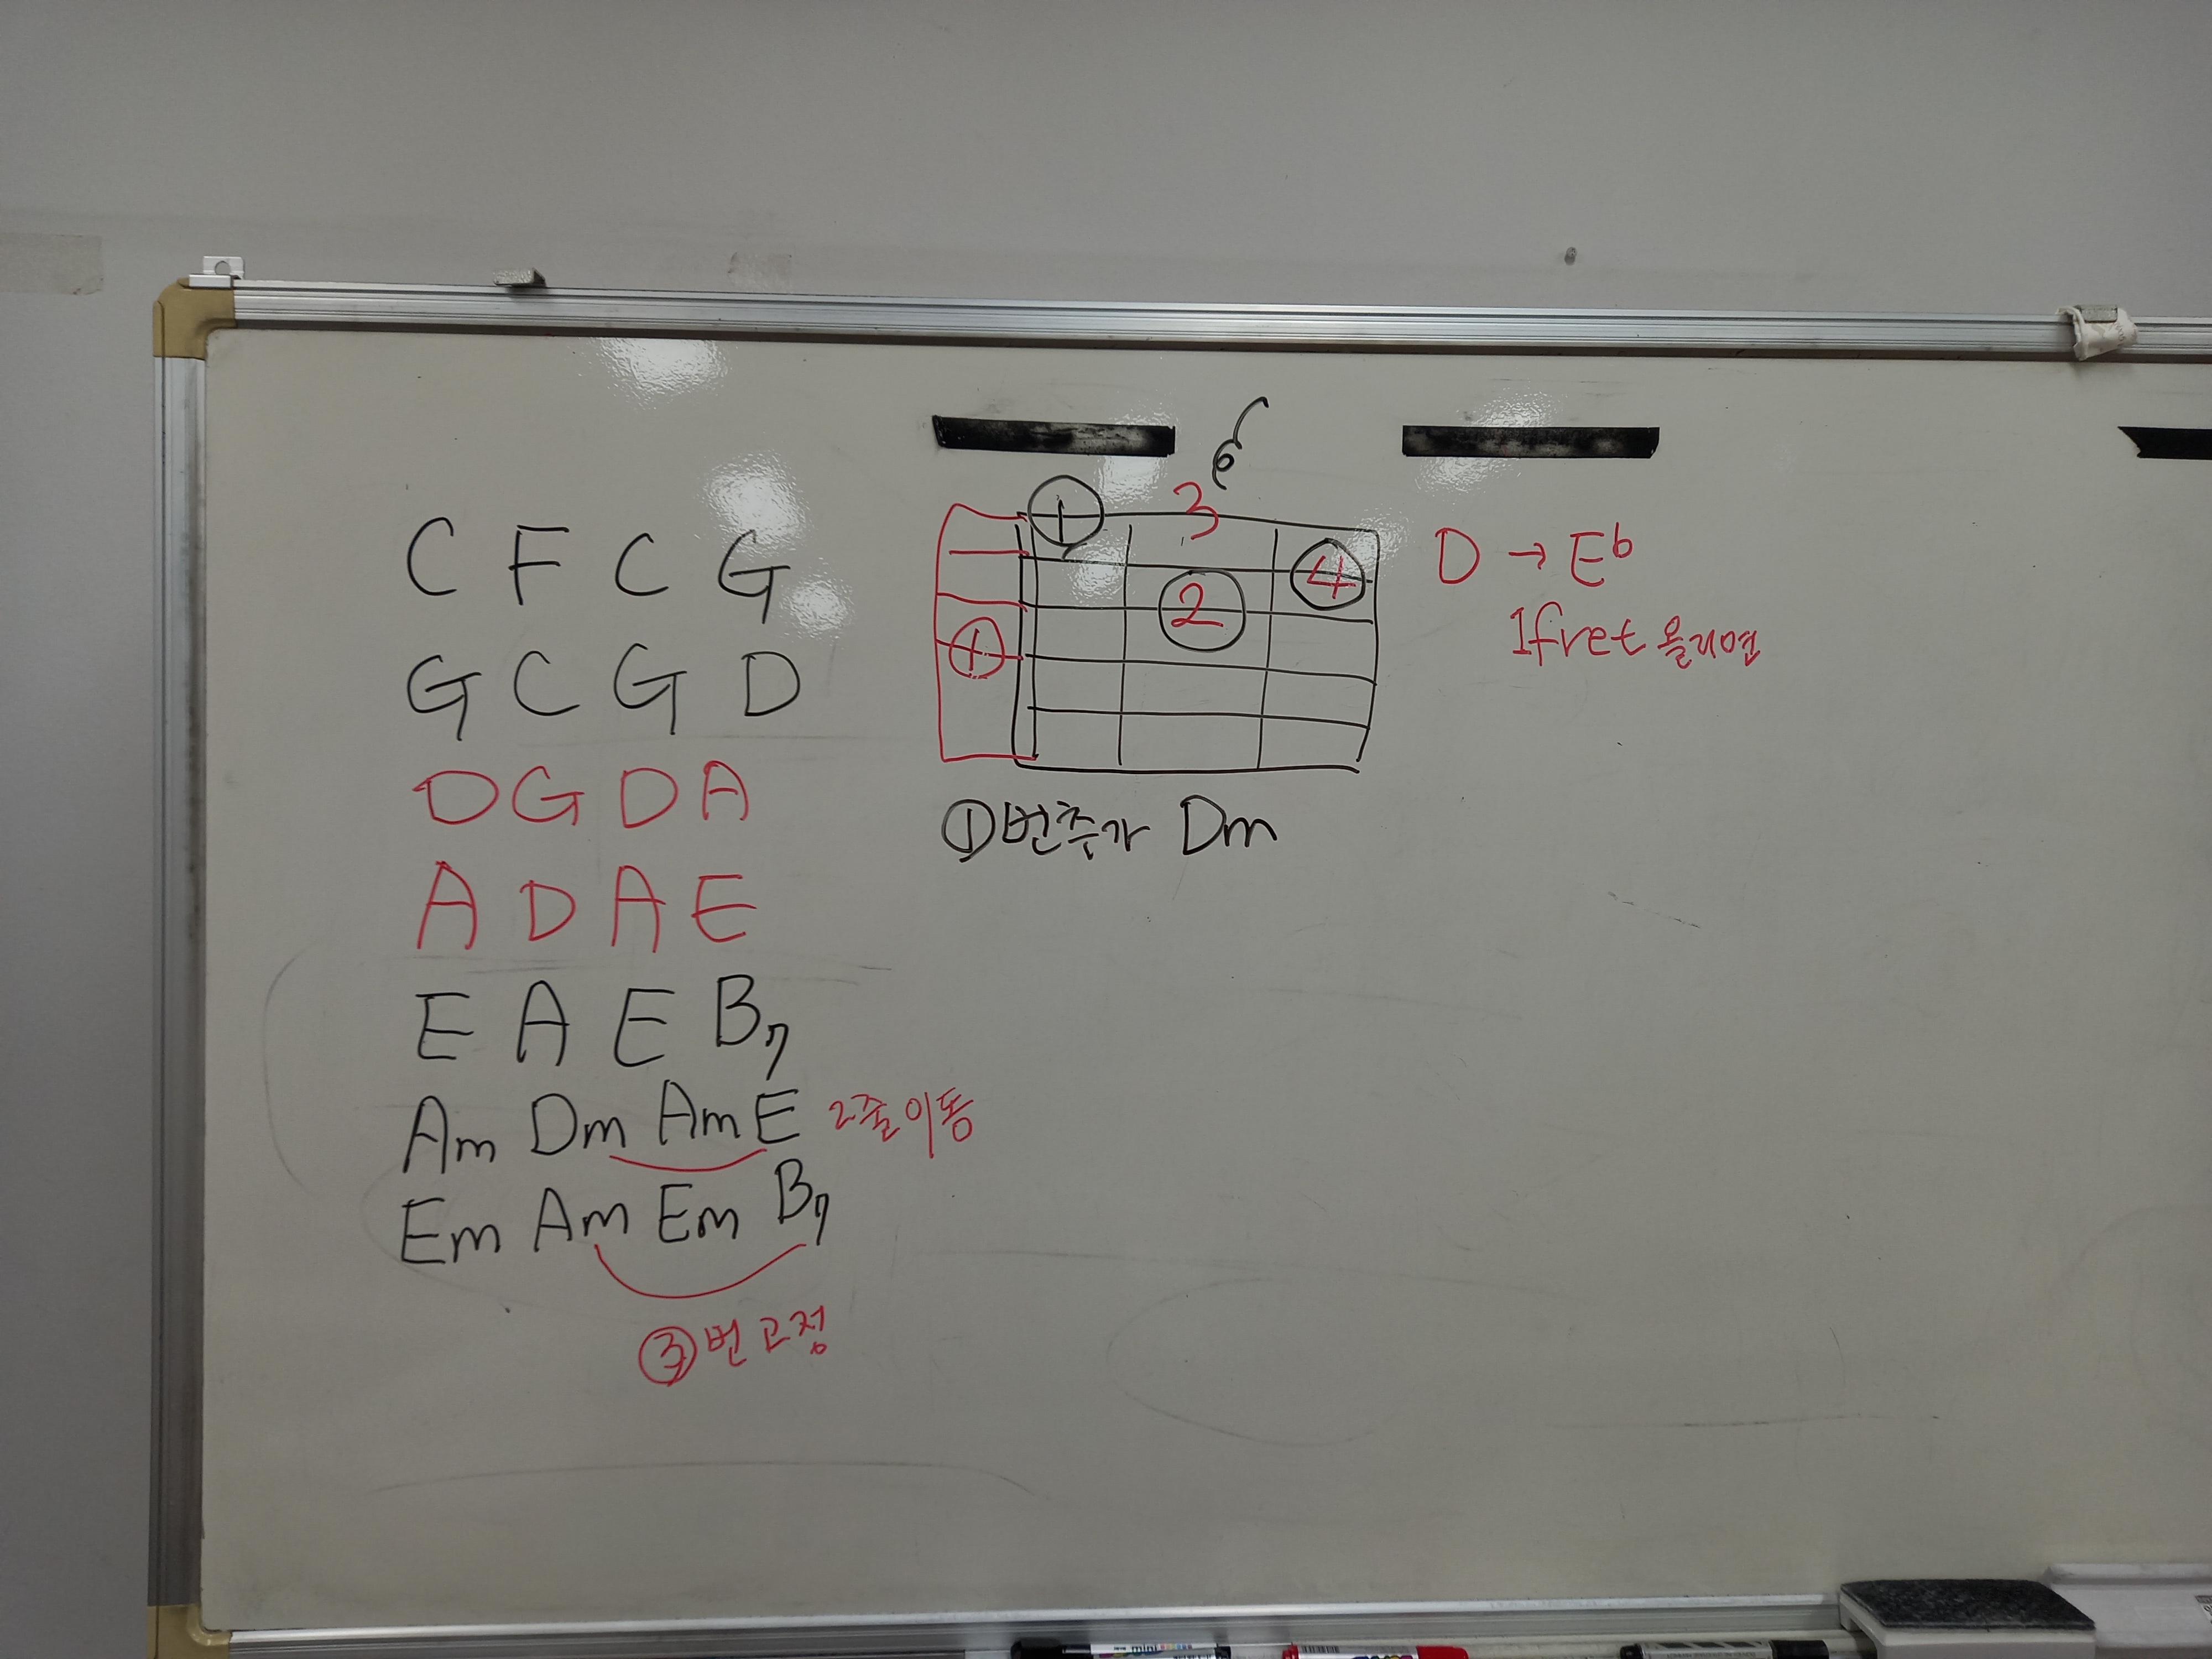 C F C G
G C G D
D G D A
A D A E
E A E B7
Am Dm Am E 2줄이동
Em Am Em B7
③번 고정
6
① 3
④
②
①
①번추가 Dm
D → E♭
1fret 올리면
mini